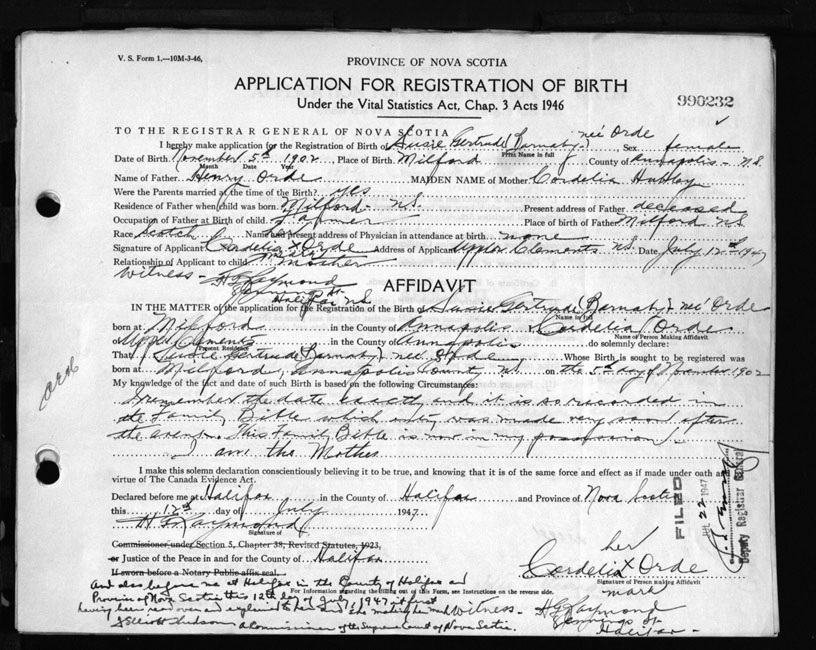 V. S. Form 1.—10M-3-46,
PROVINCE OF NOVA SCOTIA
APPLICATION FOR REGISTRATION OF BIRTH
Under the Vital Statistics Act, Chap. 3 Acts 1946
990232
TO THE REGISTRAR GENERAL OF NOVA SCOTIA
I hereby make application for the Registration of Birth of Susie Gertrude (Barnaby) neé Orde Sex female
Print Name in full
Date of Birth November 5th 1902 Place of Birth Milford County of Annapolis - N.S.
Month Date Year
Name of Father Henry Orde MAIDEN NAME of Mother Cordelia Hubley
Were the Parents married at the time of the Birth? yes
Residence of Father when child was born Milford - N.S. Present address of Father deceased
Occupation of Father at Birth of child Farmer Place of birth of Father Milford N.S
Race Scotch Name and present address of Physician in attendance at birth none
Signature of Applicant Cordelia X Orde Address of Applicant Upper Clements N.S. Date July 12th 1947
mark
Relationship of Applicant to child mother
Witness - H G Laymond
Jennings St.
Halifax N.S.
AFFIDAVIT
IN THE MATTER of the application for the Registration of the Birth of Susie Gertrude (Barnaby) neé Orde
Name in full
born at Milford in the County of Annapolis Cordelia Orde
Name of Person Making Affidavit
of Upper Clements in the County of Annapolis do solemnly declare:
Present Residence
That Susie Gertrude (Barnaby) neé Orde Whose Birth is sought to be registered was
born at Milford, Annapolis County N.S. on the 5th day of November 1902
My knowledge of the fact and date of such Birth is based on the following Circumstances:
I remember the date exactly and it is so recorded in
the Family Bible which entry was made very soon after
the event. This Family Bible is now in my possession.
I am the Mother
ord
I make this solemn declaration conscientiously believing it to be true, and knowing that it is of the same force and effect as if made under oath and by
virtue of The Canada Evidence Act.
Declared before me at Halifax in the County of Halifax and Province of Nova Scotia
this 12th day of July 1947
H G Laymond
Signature of
Commissioner under Section 5, Chapter 38, Revised Statutes, 1923,
or Justice of the Peace in and for the County of Halifax
If sworn before a Notary Public affix seal.
her
Cordelia X Orde
Signature of Person making Affidavit
mark
For Information regarding the filling out of this Form, see Instructions on the reverse side.
And also before me at Halifax in the County of Halifax and
Province of Nova Scotia this 12th day of July, 1947 it first
having been read over and explained to her and she made her mark
A Commissioner of the Supreme Court of Nova Scotia.
Witness - H G Laymond
Jennings St
Halifax -
FILED
22 1947
Deputy Registrar General